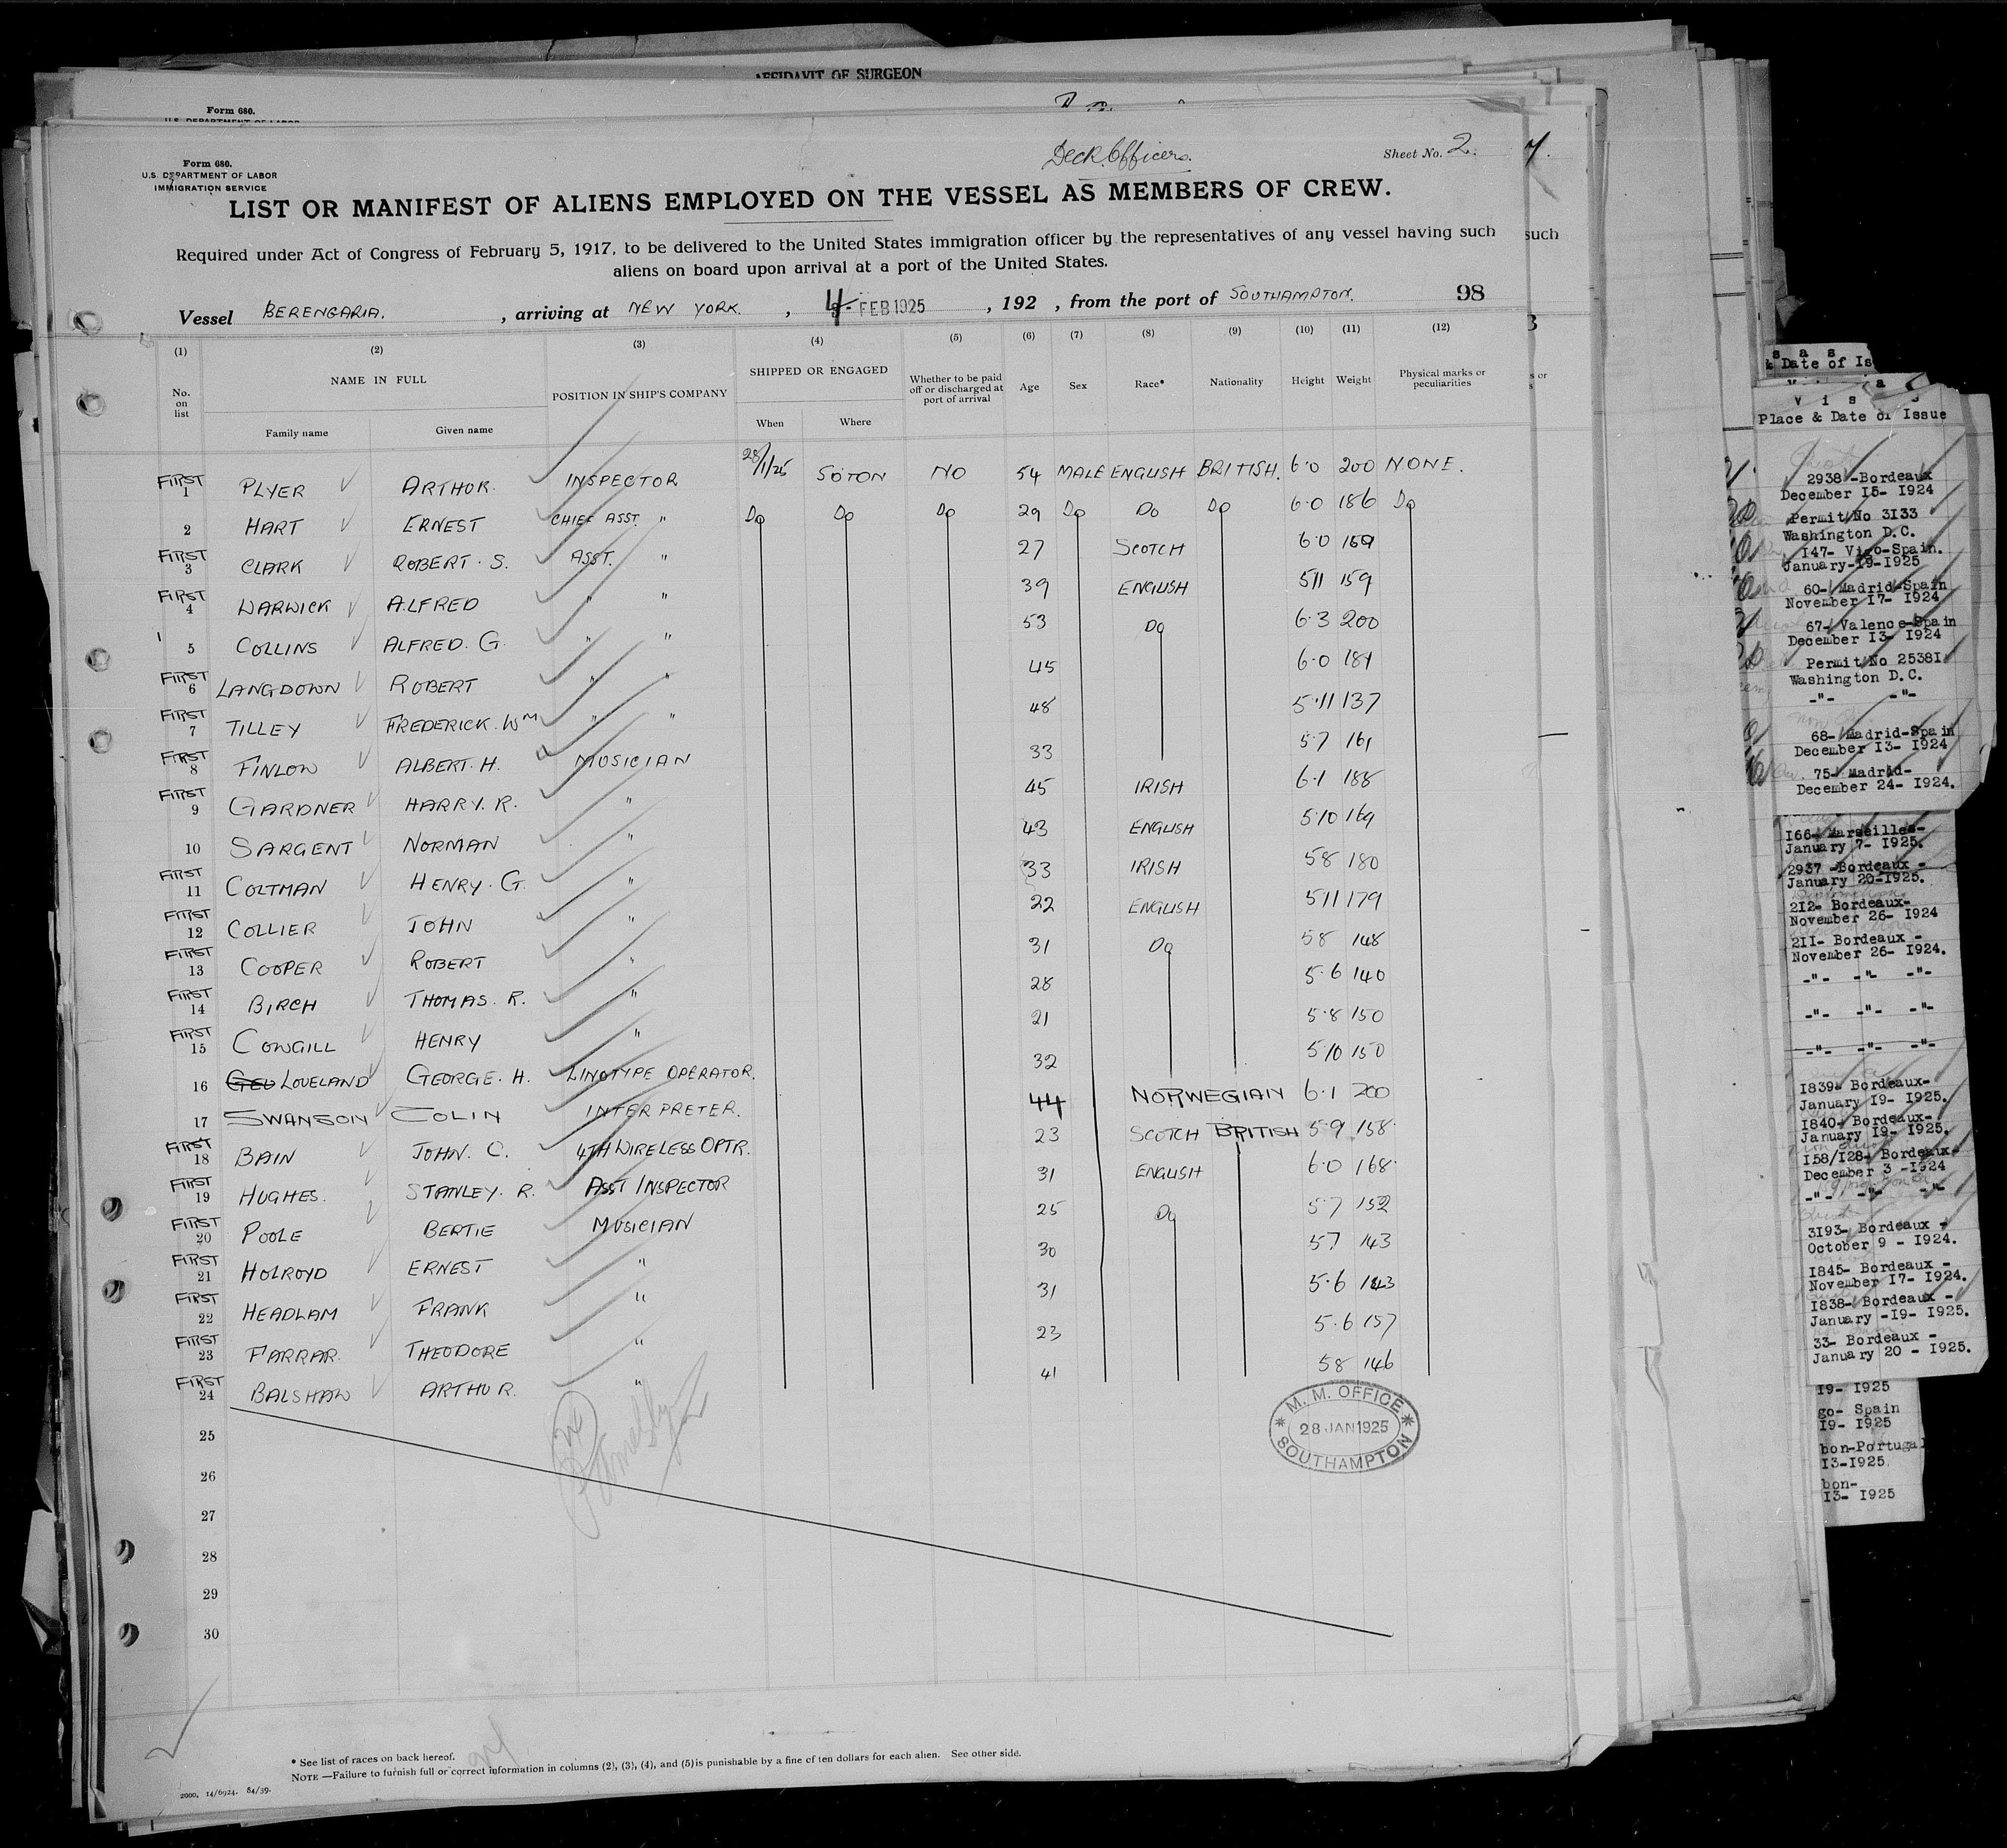 AFFIDAVIT OF SURGEON
Form 680.
U.S. DEPARTMENT OF LABOR
Deck Officers.
Sheet No. 2.
Form 680.
U.S. DEPARTMENT OF LABOR
IMMIGRATION SERVICE
LIST OR MANIFEST OF ALIENS EMPLOYED ON THE VESSEL AS MEMBERS OF CREW.
Required under Act of Congress of February 5, 1917, to be delivered to the United States immigration officer by the representatives of any vessel having such
aliens on board upon arrival at a port of the United States.
such
Vessel BERENGARIA. , arriving at NEW YORK. , 4 - FEB 1925 , 192 , from the port of SOUTHAMPTON. 98
(1) (2) (3) (4) (5) (6) (7) (8) (9) (10) (11) (12)
No. on list NAME IN FULL POSITION IN SHIP'S COMPANY SHIPPED OR ENGAGED Whether to be paid off or discharged at port of arrival Age Sex Race* Nationality Height Weight Physical marks or peculiarities
Family name Given name When Where
FIRST 1 PLYER ARTHUR. INSPECTOR 28/1/25 SOTON NO 54 MALE ENGLISH BRITISH. 6.0 200 NONE.
2 HART ERNEST CHIEF ASST. " Do Do Do 29 Do Do Do 6.0 186 Do
FIRST 3 CLARK ROBERT. S. ASST. " 27 SCOTCH 6.0 169
FIRST 4 WARWICK ALFRED " " 39 ENGLISH 5 11 159
5 COLLINS ALFRED. G. " " 53 Do 6.3 200
FIRST 6 LANGDOWN ROBERT " " 45 6.0 181
FIRST 7 TILLEY FREDERICK. WM " " 48 5.11 137
FIRST 8 FINLOW ALBERT. H. MUSICIAN 33 5.7 161
FIRST 9 GARDNER HARRY. R. " 45 IRISH 6.1 188
10 SARGENT NORMAN " 43 ENGLISH 5.10 169
FIRST 11 COLTMAN HENRY. G. " 33 IRISH 5 8 180
FIRST 12 COLLIER JOHN " 22 ENGLISH 5 11 179
FIRST 13 COOPER ROBERT " 31 Do 5 8 148
FIRST 14 BIRCH THOMAS. R. " 28 5.6 140
FIRST 15 COWGILL HENRY " 21 5.8 150
16 LOVELAND GEORGE. H. LINOTYPE OPERATOR. 32 5 10 150
17 SWANSON COLIN INTERPRETER. 44 NORWEGIAN 6.1 200
FIRST 18 BAIN JOHN. C. 4TH WIRELESS OPTR. 23 SCOTCH BRITISH 5 9 158
FIRST 19 HUGHES. STANLEY. R. ASST INSPECTOR 31 ENGLISH 6.0 168
FIRST 20 POOLE BERTIE MUSICIAN 25 Do 5 7 152
FIRST 21 HOLROYD ERNEST " 30 5 7 143
FIRST 22 HEADLAM FRANK " 31 5.6 143
FIRST 23 FARRAR. THEODORE " 23 5.6 157
FIRST 24 BALSHAW ARTHUR. " 41 5 8 146
25
26
27
28
29
30
M. M. OFFICE
28 JAN 1925
SOUTHAMPTON
* See list of races on back hereof.
NOTE —Failure to furnish full or correct information in columns (2), (3), (4), and (5) is punishable by a fine of ten dollars for each alien. See other side.
2000. 14/6924. 84/39.
& Date of Is
V i s
Place & Date of Issue
2938 -Bordeaux
December 15- 1924
Permit No 3133
Washington D.C.
147- Vigo-Spain.
January-19-1925
60- Madrid-Spain
November 17- 1924
67- Valence-Spain
December 13- 1924
Permit No 25381
Washington D.C.
-"- -"-
68- Madrid-Spain
December 13- 1924
75- Madrid-
December 24- 1924.
166- Marseilles-
January 7- 1925.
2937 -Bordeaux -
January 20-1925.
212- Bordeaux-
November 26- 1924
211- Bordeaux -
November 26- 1924.
-"- -"- -"-
-"- -"- -"-
-"- -"- -"-
1839- Bordeaux-
January 19- 1925.
1840- Bordeaux-
January 19- 1925.
158/128- Bordeaux-
December 3 -1924
-"- -"- -"-
3193- Bordeaux -
October 9 - 1924.
1845- Bordeaux -
November 17- 1924.
1838- Bordeaux -
January -19- 1925.
33- Bordeaux -
January 20 - 1925.
19- 1925
go- Spain
19- 1925
bon-Portugal
13-1925
bon-
13- 1925